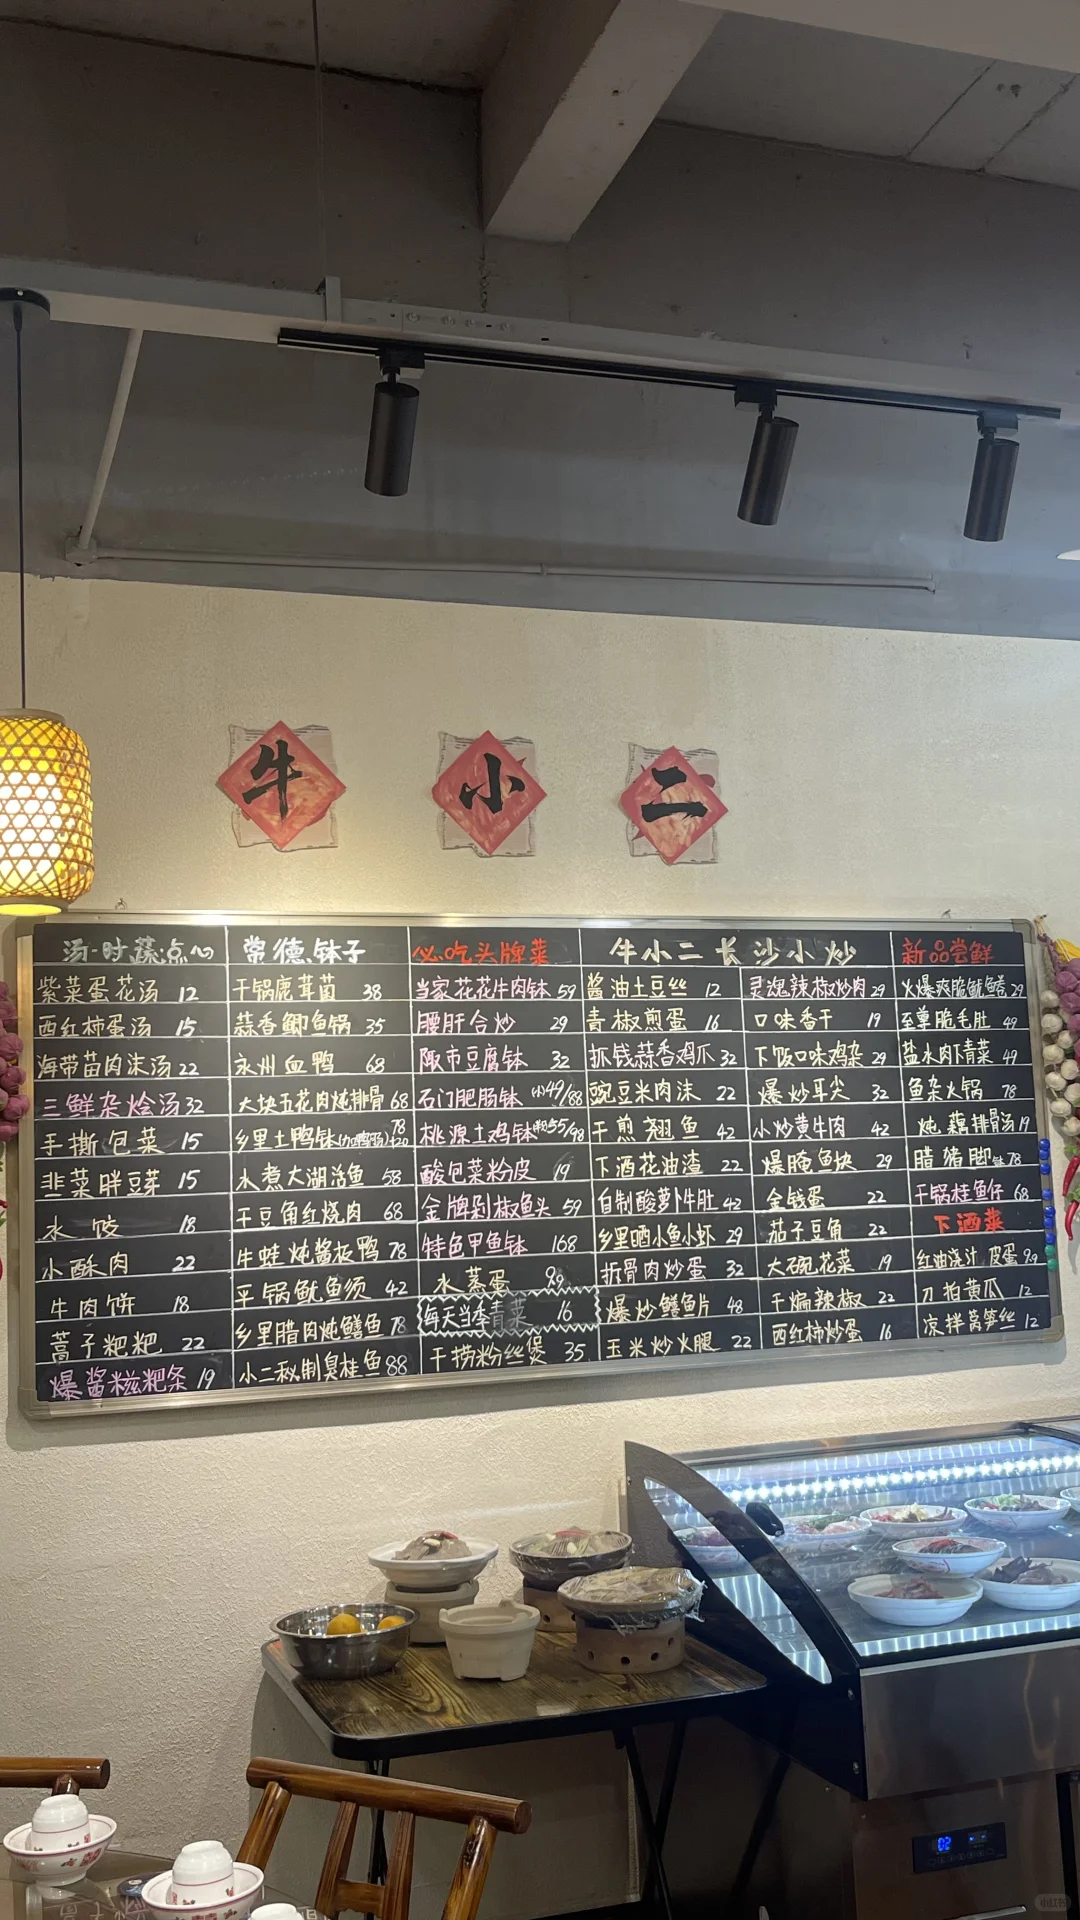 牛 小 二
汤·时蔬·点心
紫菜蛋花汤 12
西红柿蛋汤 15
海带苗肉沫汤 22
三鲜杂烩汤 32
手撕包菜 15
韭菜胖豆芽 15
水饺 18
小酥肉 22
牛肉饼 18
蒿子粑粑 22
爆酱糍粑条 19
常德钵子
干锅鹿茸菌 38
蒜香鲫鱼锅 35
永州血鸭 68
大块五花肉炖排骨 68
乡里土鸭钵 78
水煮大湖活鱼 58
干豆角红烧肉 68
牛蛙炖酱板鸭 78
平锅鱿鱼须 42
乡里腊肉炖鳝鱼 78
小二秘制臭桂鱼 88
必吃头牌菜
当家花花牛肉钵 59
腰肝合炒 29
陬市豆腐钵 32
石门肥肠钵 小49/88
桃源土鸡钵 55/98
酸包菜粉皮 19
金牌剁椒鱼头 59
特色甲鱼钵 168
水蒸蛋 9.9
每天当季青菜 16
干捞粉丝煲 35
牛小二长沙小炒
酱油土豆丝 12
青椒煎蛋 16
抓钱蒜香鸡爪 32
豌豆米肉沫 22
干煎翘鱼 42
下酒花油渣 22
自制酸萝卜牛肚 42
乡里晒小鱼小虾 29
拆骨肉炒蛋 32
爆炒鳝鱼片 48
玉米炒火腿 22
灵魂辣椒炒肉 29
口味香干 19
下饭口味鸡杂 29
爆炒耳尖 32
小炒黄牛肉 42
爆腌鱼块 29
金钱蛋 22
茄子豆角 22
大碗花菜 19
干煸辣椒 22
西红柿炒蛋 16
新品尝鲜
火爆爽脆鱿鱼卷 29
至尊脆毛肚 49
盐水肉下青菜 49
鱼杂火锅 78
炖藕排骨汤 19
腊猪脚钵 78
干锅桂鱼仔 68
下酒菜
红油浇汁皮蛋 9.9
刀拍黄瓜 12
凉拌莴笋丝 12
02